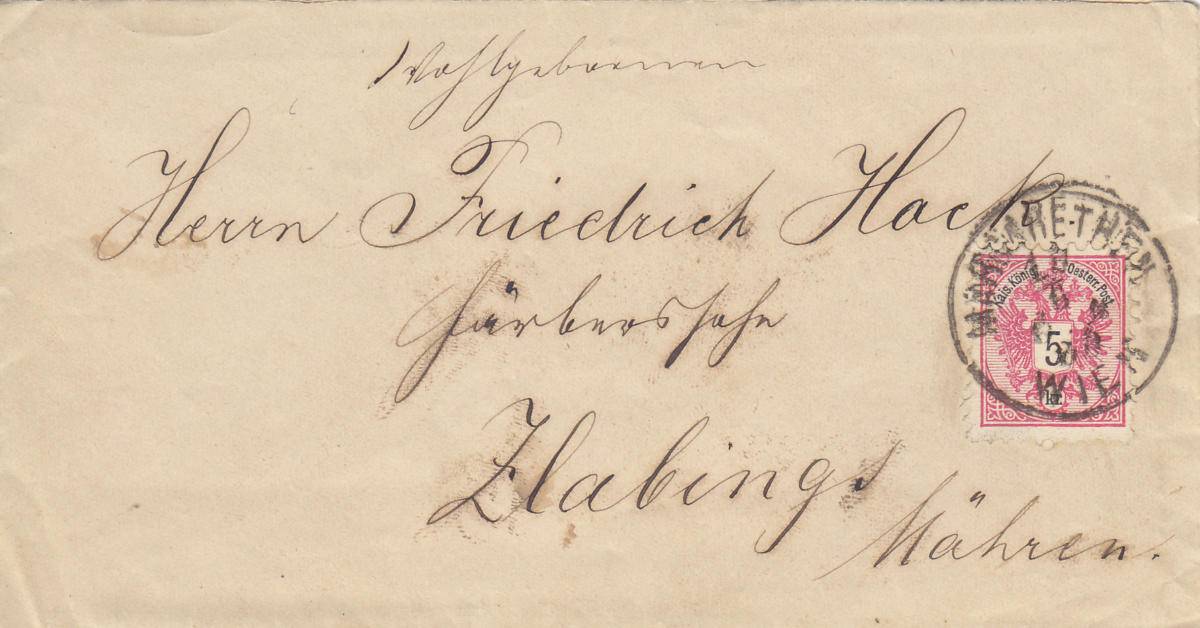 Wohlgebornen
Herrn Friedrich Hack
Färberssohn
Zlabings
Mähren.
MARGARETHEN
WIEN
Kais. Königl. Oesterr. Post
5
kr.